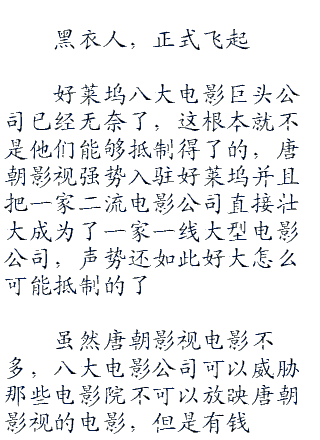 黑衣人，正式飞起
好莱坞八大电影巨头公
司已经无奈了，这根本就不
是他们能够抵制得了的，唐
朝影视强势入驻好莱坞并且
把一家二流电影公司直接壮
大成为了一家一线大型电影
公司，声势还如此好大怎么
可能抵制的了
虽然唐朝影视电影不
多，八大电影公司可以威胁
那些电影院不可以放映唐朝
影视的电影，但是有钱